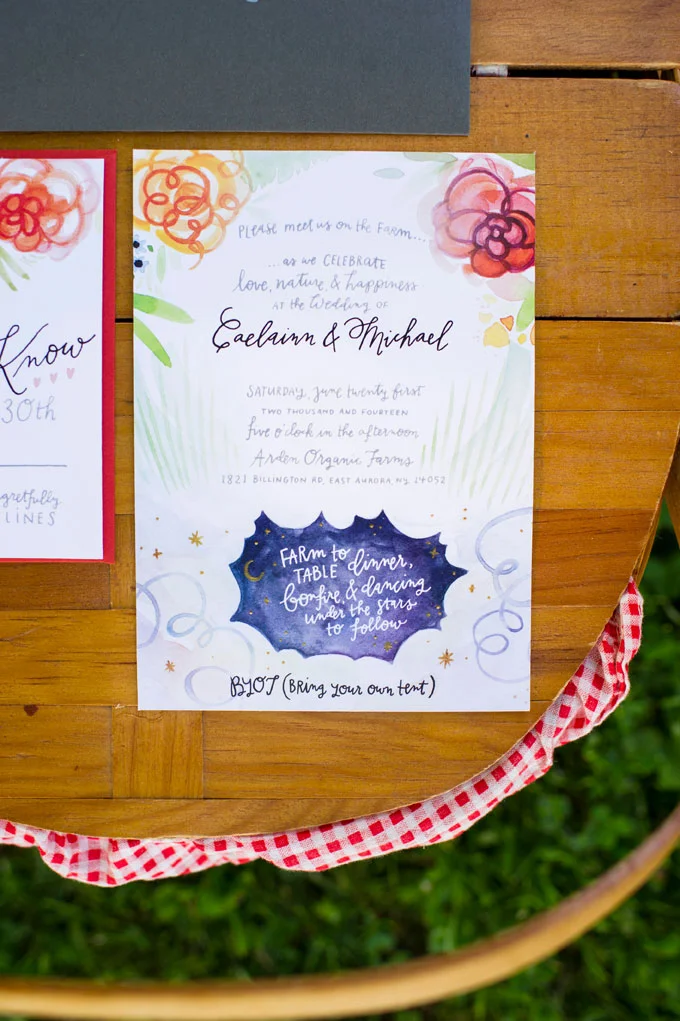 Please meet us on the Farm...
...as we CELEBRATE
love, nature, & happiness
AT the Wedding OF
Caelainn & Michael
SATURDAY, June twenty first
TWO THOUSAND AND FOURTEEN
five o'clock in the afternoon
Arden Organic Farms
1821 BILLINGTON RD, EAST AURORA, NY, 14052
FARM to
TABLE dinner,
bonfire, & dancing
under the stars
to follow
BYOT (Bring your own tent)
Know
30th
egretfully
LINES